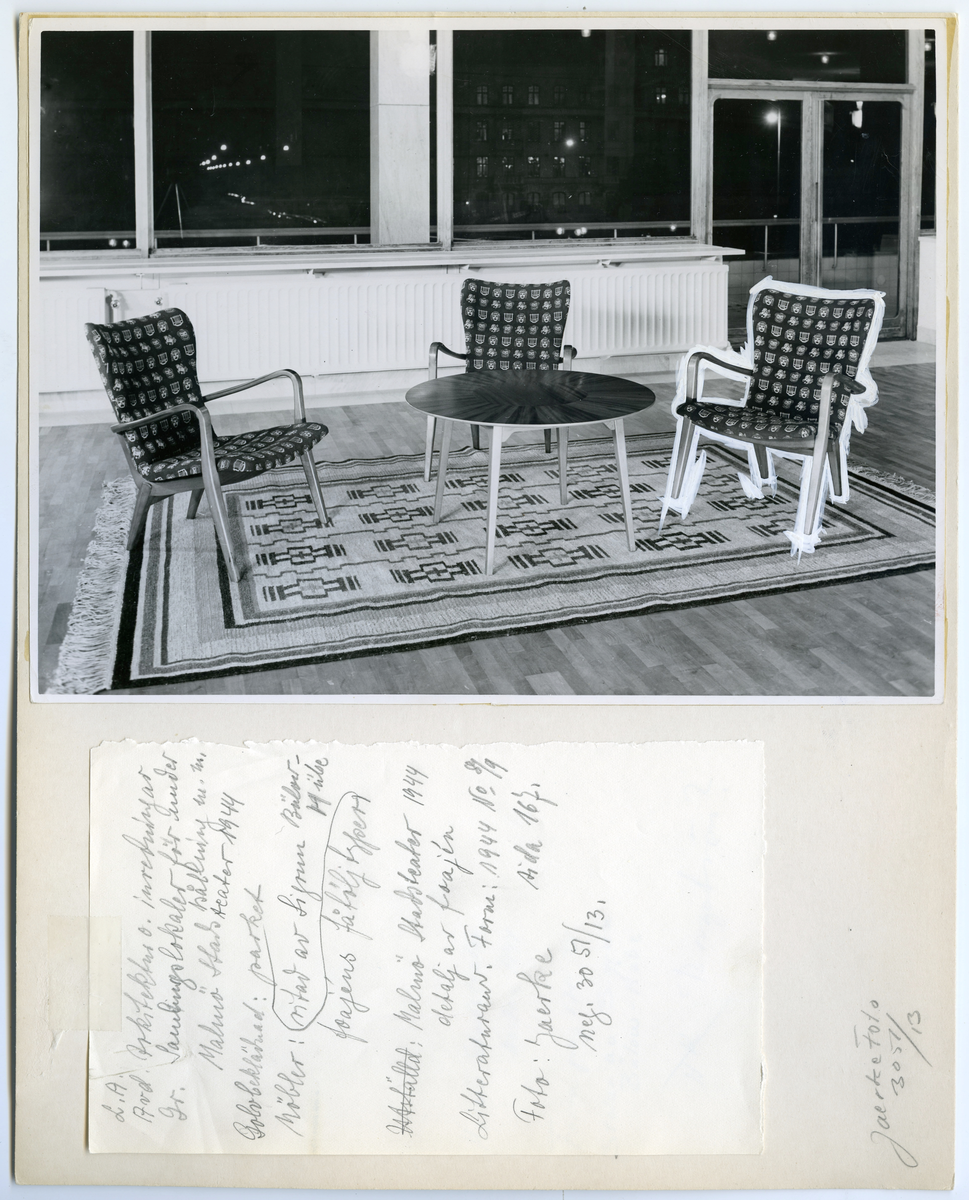 L. A.
Avd: Arkitektur o. inredningar
Gr. Samlingslokaler för under
hållning m. m.
Malmö Stadsteater 1944
Golvbeklädnad: parket
Möbler: ritad av Sigrun Bülow-
Hübe
foajéns fåtöljtyper
Utställd: Malmö Stadsteater 1944
detalj av foajén
Litteraturanv. Form: 1944 No 8/9
sida 167.
Foto: Jaerke
neg. 30 51/13.
Jaerke Foto
3051/13